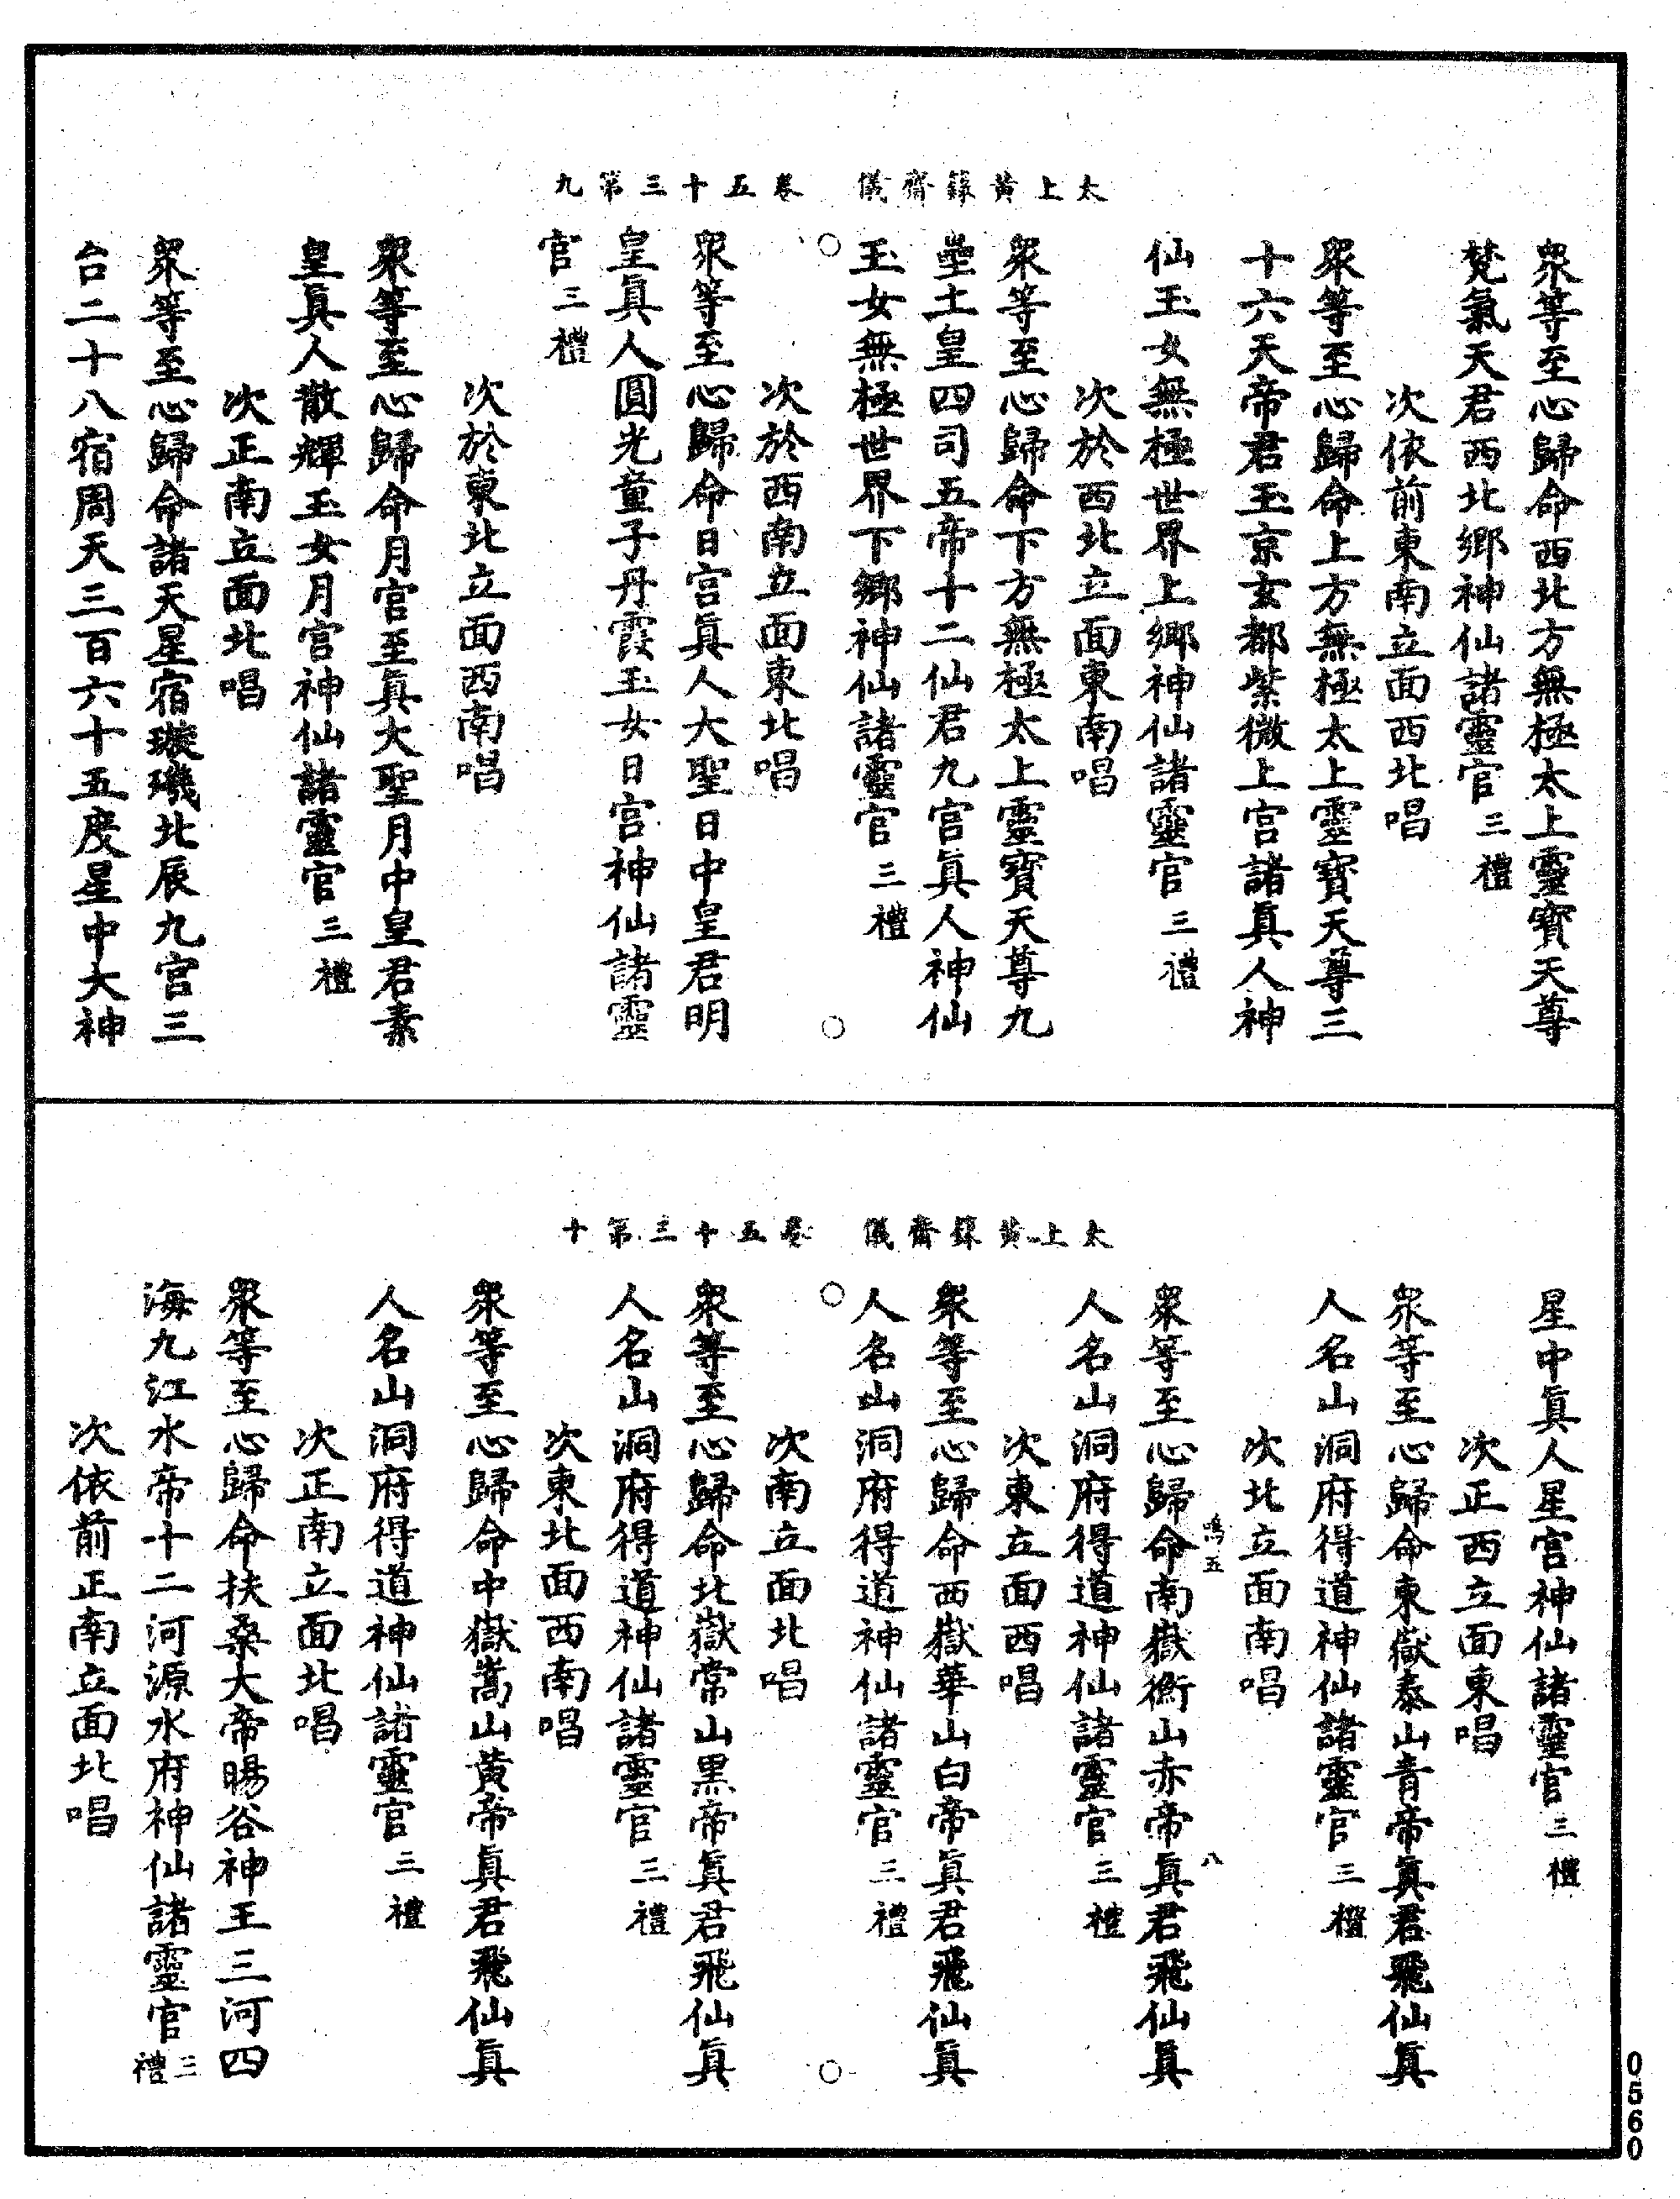 太上黃籙齋儀　卷五十三第九
眾等至心歸命西北方無極太上靈寶天尊
梵氣天君西北鄉神仙諸靈官三禮
次依前東南立面西北唱
眾等至心歸命上方無極太上靈寶天尊三
十六天帝君玉京玄都紫微上宮諸真人神
仙玉女無極世界上鄉神仙諸靈官三禮
次於西北立面東南唱
眾等至心歸命下方無極太上靈寶天尊九
壘土皇四司五帝十二仙君九宮真人神仙
玉女無極世界下鄉神仙諸靈官三禮
次於西南立面東北唱
眾等至心歸命日宮真人大聖日中皇君明
皇真人圓光童子丹霞玉女日宮神仙諸靈
官三禮
次於東北立面西南唱
眾等至心歸命月宮至真大聖月中皇君素
皇真人散輝玉女月宮神仙諸靈官三禮
次正南立面北唱
眾等至心歸命諸天星宿璇璣北辰九宮三
台二十八宿周天三百六十五度星中大神
太上黃籙齋儀　卷五十三第十
星中真人星宮神仙諸靈官三禮
次正西立面東唱
眾等至心歸命東嶽泰山青帝真君飛仙真
人名山洞府得道神仙諸靈官三禮
次北立面南唱
鳴五　八
眾等至心歸命南嶽衡山赤帝真君飛仙真
人名山洞府得道神仙諸靈官三禮
次東立面西唱
眾等至心歸命西嶽華山白帝真君飛仙真
人名山洞府得道神仙諸靈官三禮
次南立面北唱
眾等至心歸命北嶽常山黑帝真君飛仙真
人名山洞府得道神仙諸靈官三禮
次東北面西南唱
眾等至心歸命中嶽嵩山黃帝真君飛仙真
人名山洞府得道神仙諸靈官三禮
次正南立面北唱
眾等至心歸命扶桑大帝暘谷神王三河四
海九江水帝十二河源水府神仙諸靈官三禮
次依前正南立面北唱
0560